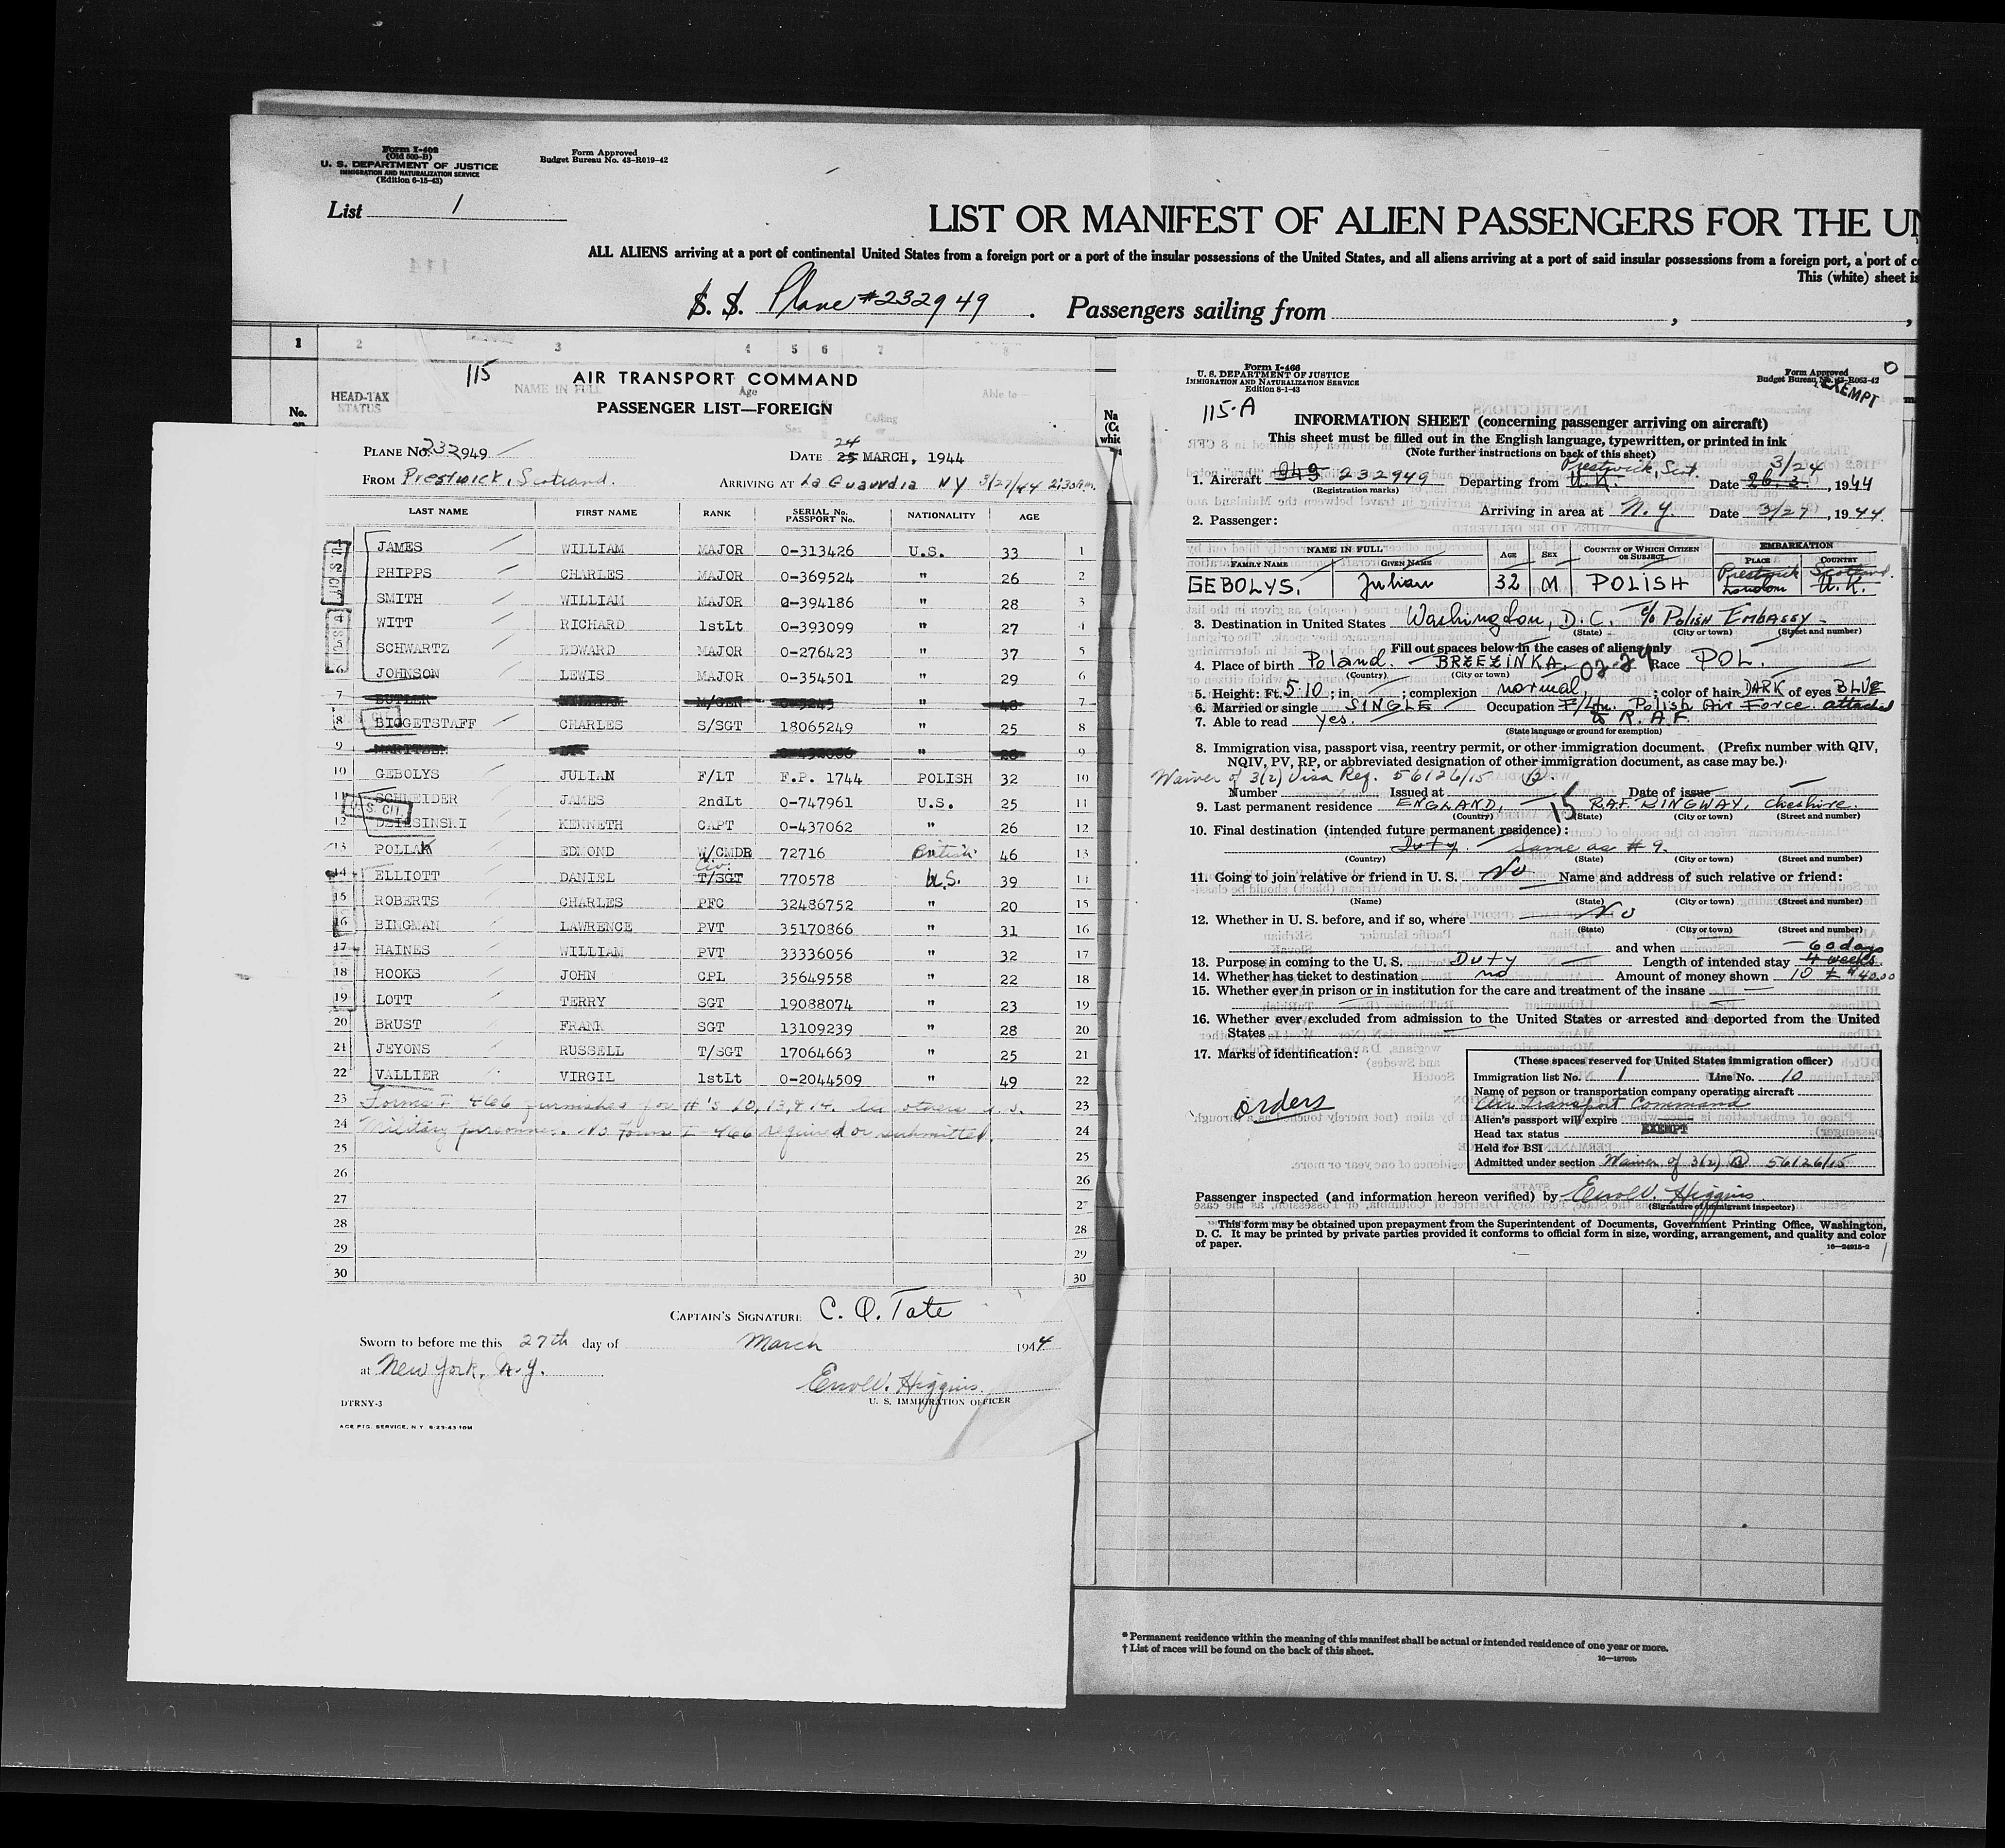 Form I-402
(Old 500-B)
U. S. DEPARTMENT OF JUSTICE
IMMIGRATION AND NATURALIZATION SERVICE
(Edition 6-15-43)
Form Approved
Budget Bureau No. 43-R019-42
List 1
LIST OR MANIFEST OF ALIEN PASSENGERS FOR THE UN
ALL ALIENS arriving at a port of continental United States from a foreign port or a port of the insular possessions of the United States, and all aliens arriving at a port of said insular possessions from a foreign port, a port of c
This (white) sheet is
S. S. Plane #232949. Passengers sailing from
1 2 3 4 5 6 7 8
HEAD-TAX STATUS
NAME IN FULL
Age
Sex
Able to—
No.
115
AIR TRANSPORT COMMAND
PASSENGER LIST—FOREIGN
PLANE No. 232949 DATE 25 24 MARCH, 1944
FROM Prestwick, Scotland. ARRIVING AT La Guardia NY 3/27/44
LAST NAME FIRST NAME RANK SERIAL No. PASSPORT No. NATIONALITY AGE
JAMES WILLIAM MAJOR O-313426 U.S. 33 1
PHIPPS CHARLES MAJOR O-369524 " 26 2
SMITH WILLIAM MAJOR O-394186 " 28 3
WITT RICHARD 1stLt O-393099 " 27 4
SCHWARTZ EDWARD MAJOR O-276423 " 37 5
JOHNSON LEWIS MAJOR O-354501 " 29 6
7 BUTLER WILLIAM M/GEN O-3245 " 48 7
8 BIGGETSTAFF CHARLES S/SGT 18065249 " 25 8
9 " 28 9
10 GEBOLYS JULIAN F/LT F.P. 1744 POLISH 32 10
11 SCHNEIDER JAMES 2ndLt O-747961 U.S. 25 11
U.S. CIT.
12 KENNETH CAPT O-437062 " 26 12
13 POLLAK EDMOND W/CMDR 72716 British 46 13
14 ELLIOTT DANIEL T/SGT Civ. 770578 U.S. 39 14
15 ROBERTS CHARLES PFC 32486752 " 20 15
16 BINGMAN LAWRENCE PVT 35170866 " 31 16
17 HAINES WILLIAM PVT 33336056 " 32 17
18 HOOKS JOHN CPL 35649558 " 22 18
19 LOTT TERRY SGT 19088074 " 23 19
20 BRUST FRANK SGT 13109239 " 28 20
21 JEYONS RUSSELL T/SGT 17064663 " 25 21
22 VALLIER VIRGIL 1stLt O-2044509 " 49 22
23 Forms I-466 furnished for #'s 10, 13, & 14. All others U.S. 23
24 Military personnel. No Forms I-466 required or submitted. 24
25 25
26 26
27 27
28 28
29 29
30 30
CAPTAIN'S SIGNATURE C. Q. Tate
Sworn to before me this 27th day of March 1944
at New York, N.Y.
Errol V. Higgins.
U. S. IMMIGRATION OFFICER
DTRNY-3
ACE PTG. SERVICE, N.Y. 8-23-43-10M
Form I-466
U. S. DEPARTMENT OF JUSTICE
IMMIGRATION AND NATURALIZATION SERVICE
Edition 8-1-43
Form Approved
Budget Bureau No. 43-R063-42
EXEMPT
115-A
INFORMATION SHEET (concerning passenger arriving on aircraft)
This sheet must be filled out in the English language, typewritten, or printed in ink
(Note further instructions on back of this sheet)
1. Aircraft 949 232949 Departing from U.K. Prestwick, Scot. Date 26.3. 3/24, 1944
(Registration marks)
Arriving in area at N.Y. Date 3/27, 1944.
2. Passenger:
NAME IN FULL AGE SEX COUNTRY OF WHICH CITIZEN OR SUBJECT EMBARKATION
FAMILY NAME GIVEN NAME PLACE COUNTRY
GEBOLYS. Julian 32 M POLISH Prestwick London Scotland. U.K.
3. Destination in United States Washington, D.C. c/o POLISH EMBASSY
(State) (City or town) (Street and number)
Fill out spaces below in the cases of aliens only
4. Place of birth Poland. BRZEZINKA. Race POL.
(Country) (City or town)
5. Height: Ft. 5-10; in. ; complexion normal, ; color of hair DARK of eyes BLUE
6. Married or single SINGLE Occupation F/Ltn. Polish Air Force attached
7. Able to read yes. to R.A.F.
(State language or ground for exemption)
8. Immigration visa, passport visa, reentry permit, or other immigration document. (Prefix number with QIV,
NQIV, PV, RP, or abbreviated designation of other immigration document, as case may be.)
Waiver of 3(2) Visa Reg. 56126/15
Number Issued at Date of issue
9. Last permanent residence ENGLAND, 15 RAF RINGWAY, Cheshire.
(Country) (State) (City or town) (Street and number)
10. Final destination (intended future permanent residence):
Duty. Same as #9.
(Country) (State) (City or town) (Street and number)
11. Going to join relative or friend in U. S. No Name and address of such relative or friend:
(Name) (State) (City or town) (Street and number)
12. Whether in U. S. before, and if so, where No
(State) (City or town) (Street and number)
and when
60 days
13. Purpose in coming to the U. S. Duty Length of intended stay 4 weeks
14. Whether has ticket to destination no Amount of money shown 10 £ $40.00
15. Whether ever in prison or in institution for the care and treatment of the insane
16. Whether ever excluded from admission to the United States or arrested and deported from the United
States
17. Marks of identification:
orders
(These spaces reserved for United States immigration officer)
Immigration list No. 1 Line No. 10
Name of person or transportation company operating aircraft
Air Transport Command
Alien's passport will expire
Head tax status EXEMPT
Held for BSI
Admitted under section Waiver of 3(2) 56126/15
Passenger inspected (and information hereon verified) by Errol V. Higgins.
(Signature of immigrant inspector)
This form may be obtained upon prepayment from the Superintendent of Documents, Government Printing Office, Washington,
D. C. It may be printed by private parties provided it conforms to official form in size, wording, arrangement, and quality and color
of paper.
16—34915-2
* Permanent residence within the meaning of this manifest shall be actual or intended residence of one year or more.
† List of races will be found on the back of this sheet.